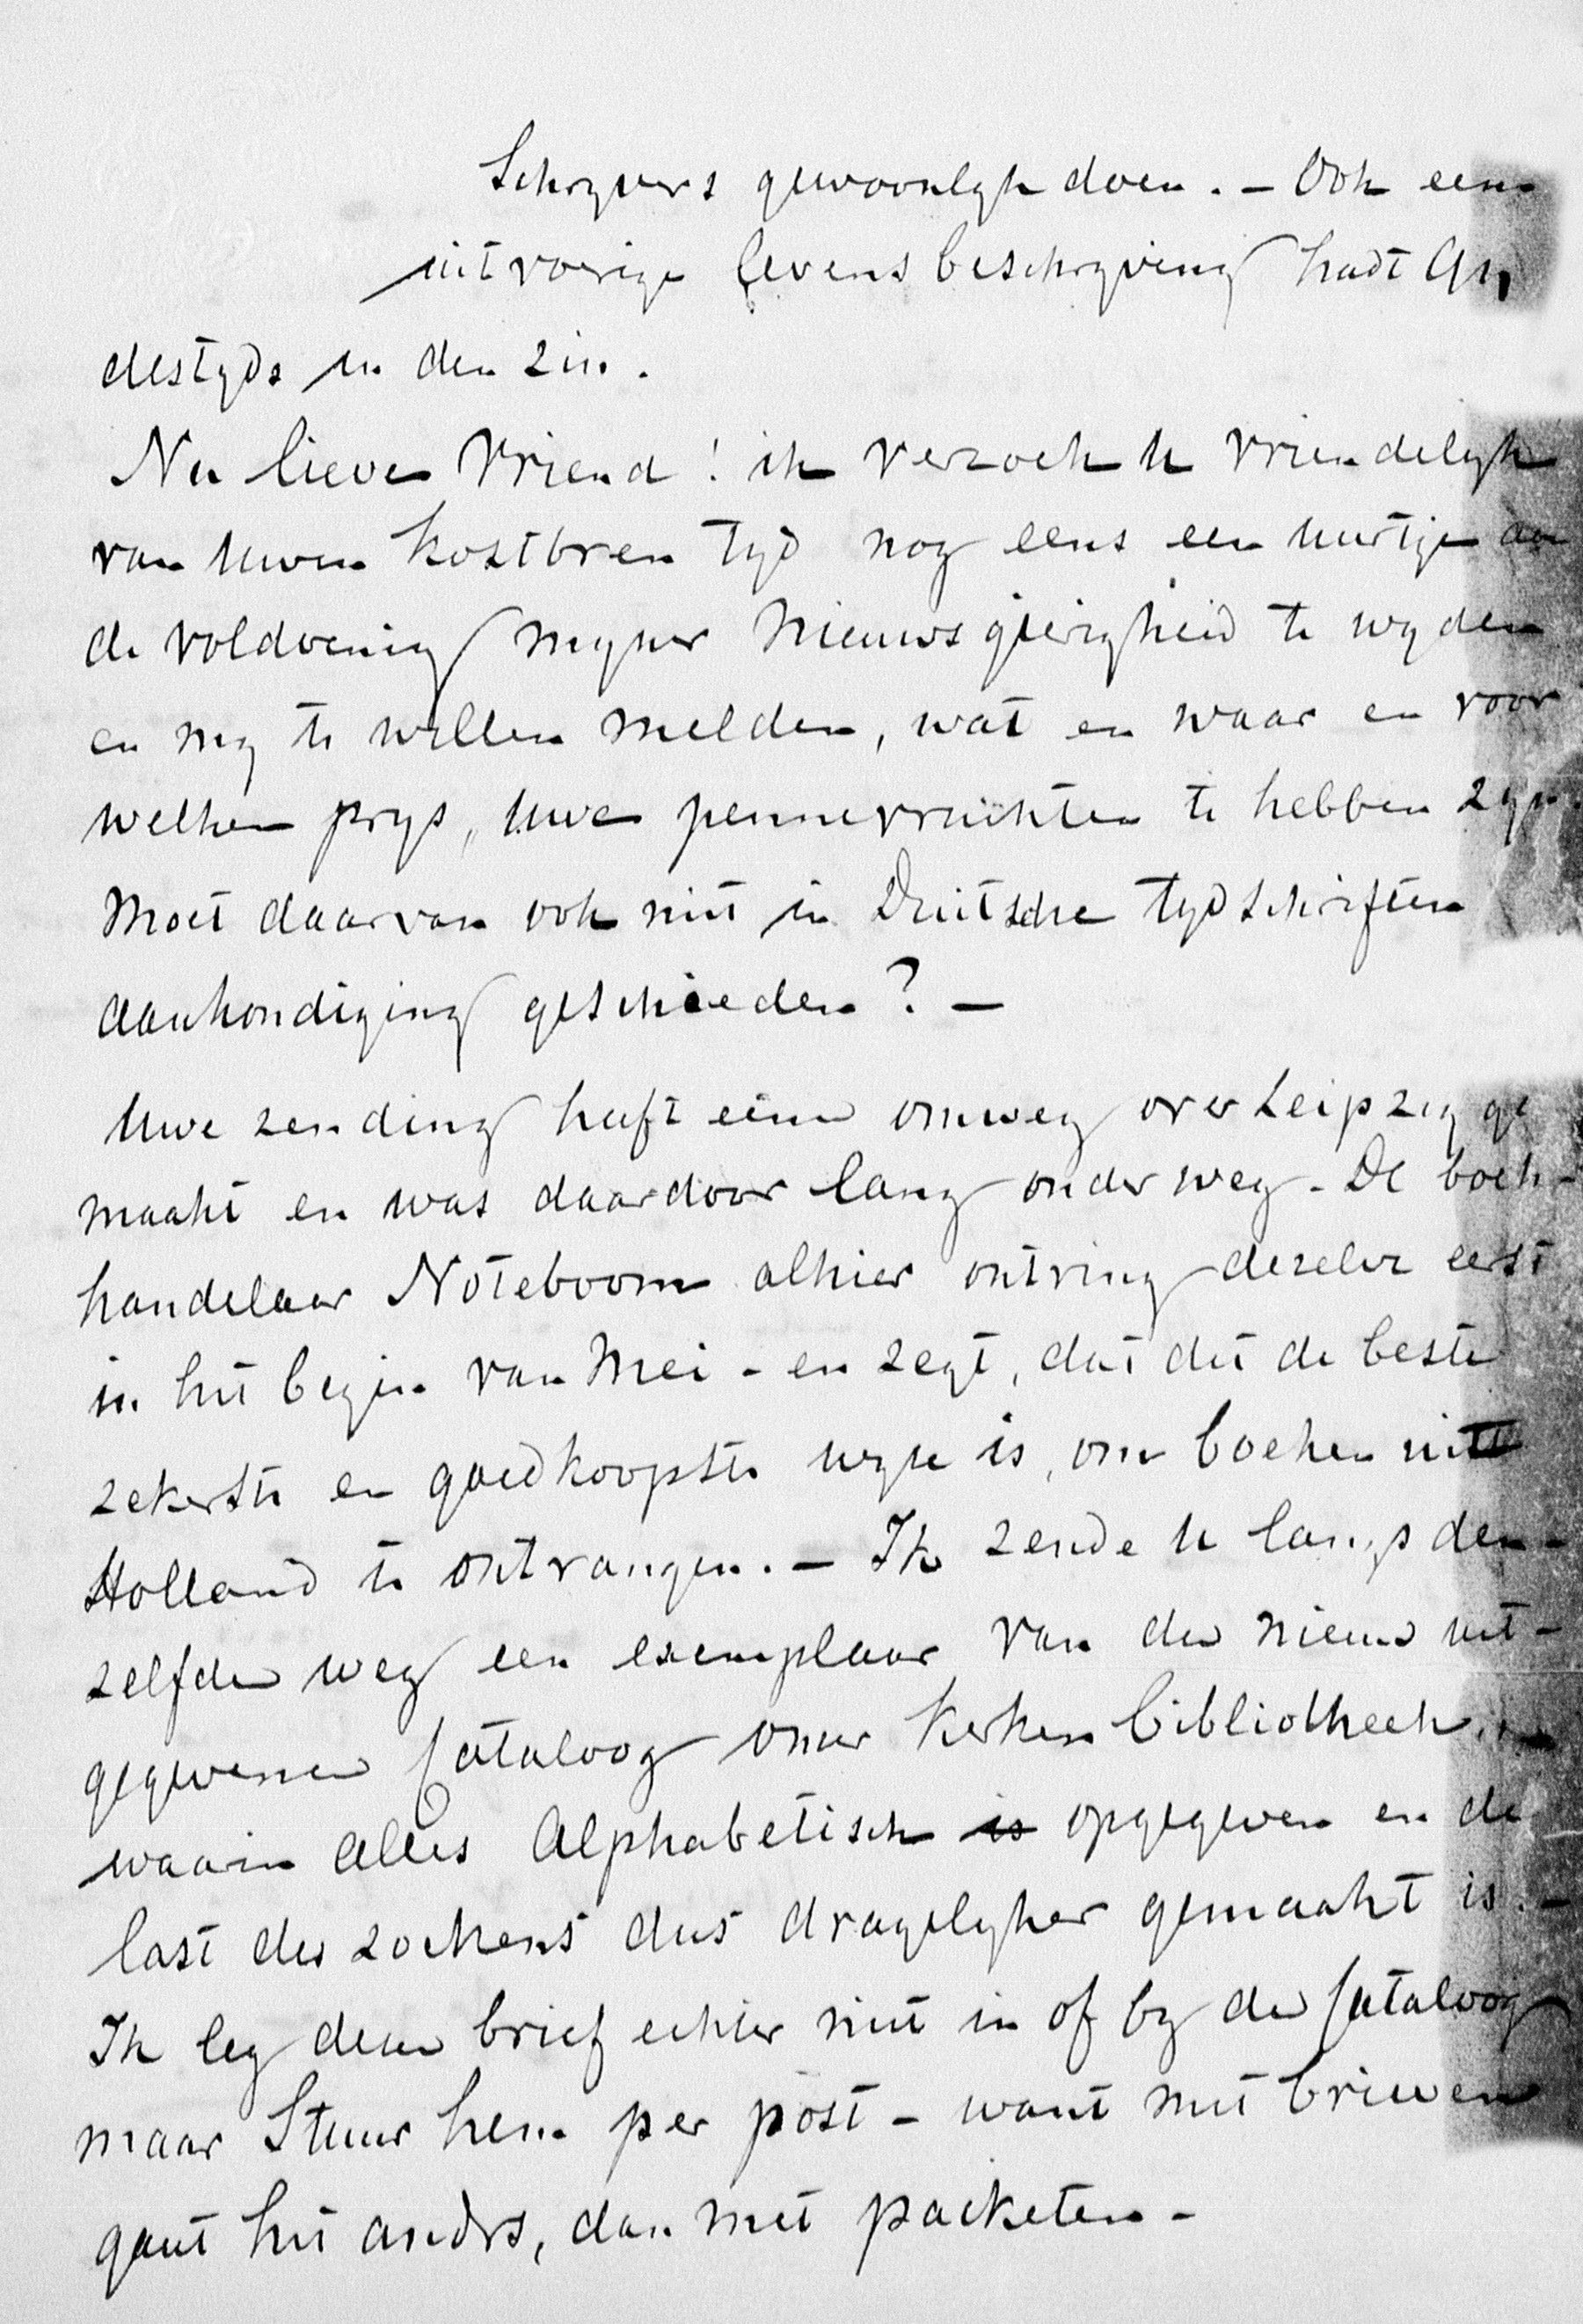 Schryvers gewoonlyk doen. – Ook een
uitvoerige levensbeschryving hadt Gy
destyds in den zin.
Nu lieve Vriend! ik verzoek U vriendelyk
van Uwen kostbren tyd nog eens een uurtje aan
de voldoening myner nieuwsgierigheid te wyden
en my te willen melden, wat en waar en voor
welken prys, Uwe pennevruchten te hebben zyn.
Moet daarvan ook niet in Duitsche tydschriften
aankondiging geschieden? –
Uwe zending heeft eenen omweg over Leipzig ge
maakt en was daardoor lang onderweg. De boek-
handelaar Noteboom alhier ontving dezelve eerst
in het begin van Mei – en zegt, dat dit de beste
zekerste en goedkoopste wyze is, om boeken uit
Holland te ontvangen. – Ik zende U langs den-
zelfden weg een exemplaar van den nieuw uit-
gegevenen Cataloog onzer Kerken bibliotheek,
waarin alles Alphabetisch opgegeven en de
last des zoekens dus dragelyker gemaakt is. –
Ik leg dezen brief echter niet in of by den Cataloog
maar Stuur hem per post – want met brieven
gaat het andrs, dan met packeten –